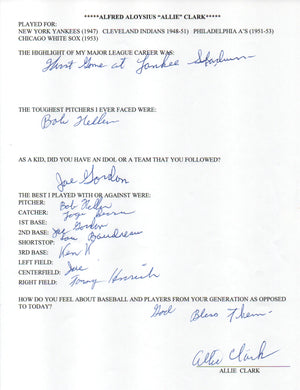 *****ALFRED ALOYSIUS "ALLIE" CLARK*****
PLAYED FOR:
NEW YORK YANKEES (1947) CLEVELAND INDIANS 1948-51) PHILADELPHIA A'S (1951-53)
CHICAGO WHITE SOX (1953)
THE HIGHLIGHT OF MY MAJOR LEAGUE CAREER WAS:
First Game at Yankee Stadium
THE TOUGHEST PITCHERS I EVER FACED WERE:
Bob Feller
AS A KID, DID YOU HAVE AN IDOL OR A TEAM THAT YOU FOLLOWED?
Joe Gordon
THE BEST I PLAYED WITH OR AGAINST WERE:
PITCHER: Bob Feller
CATCHER: Yogi Berra
1ST BASE:
2ND BASE: Joe Gordon
SHORTSTOP: Lou Boudreau
3RD BASE: Ken K
LEFT FIELD:
CENTERFIELD: Joe
RIGHT FIELD: Tommy Henrich
HOW DO YOU FEEL ABOUT BASEBALL AND PLAYERS FROM YOUR GENERATION AS OPPOSED
TO TODAY?
God Bless Them
Allie Clark
ALLIE CLARK